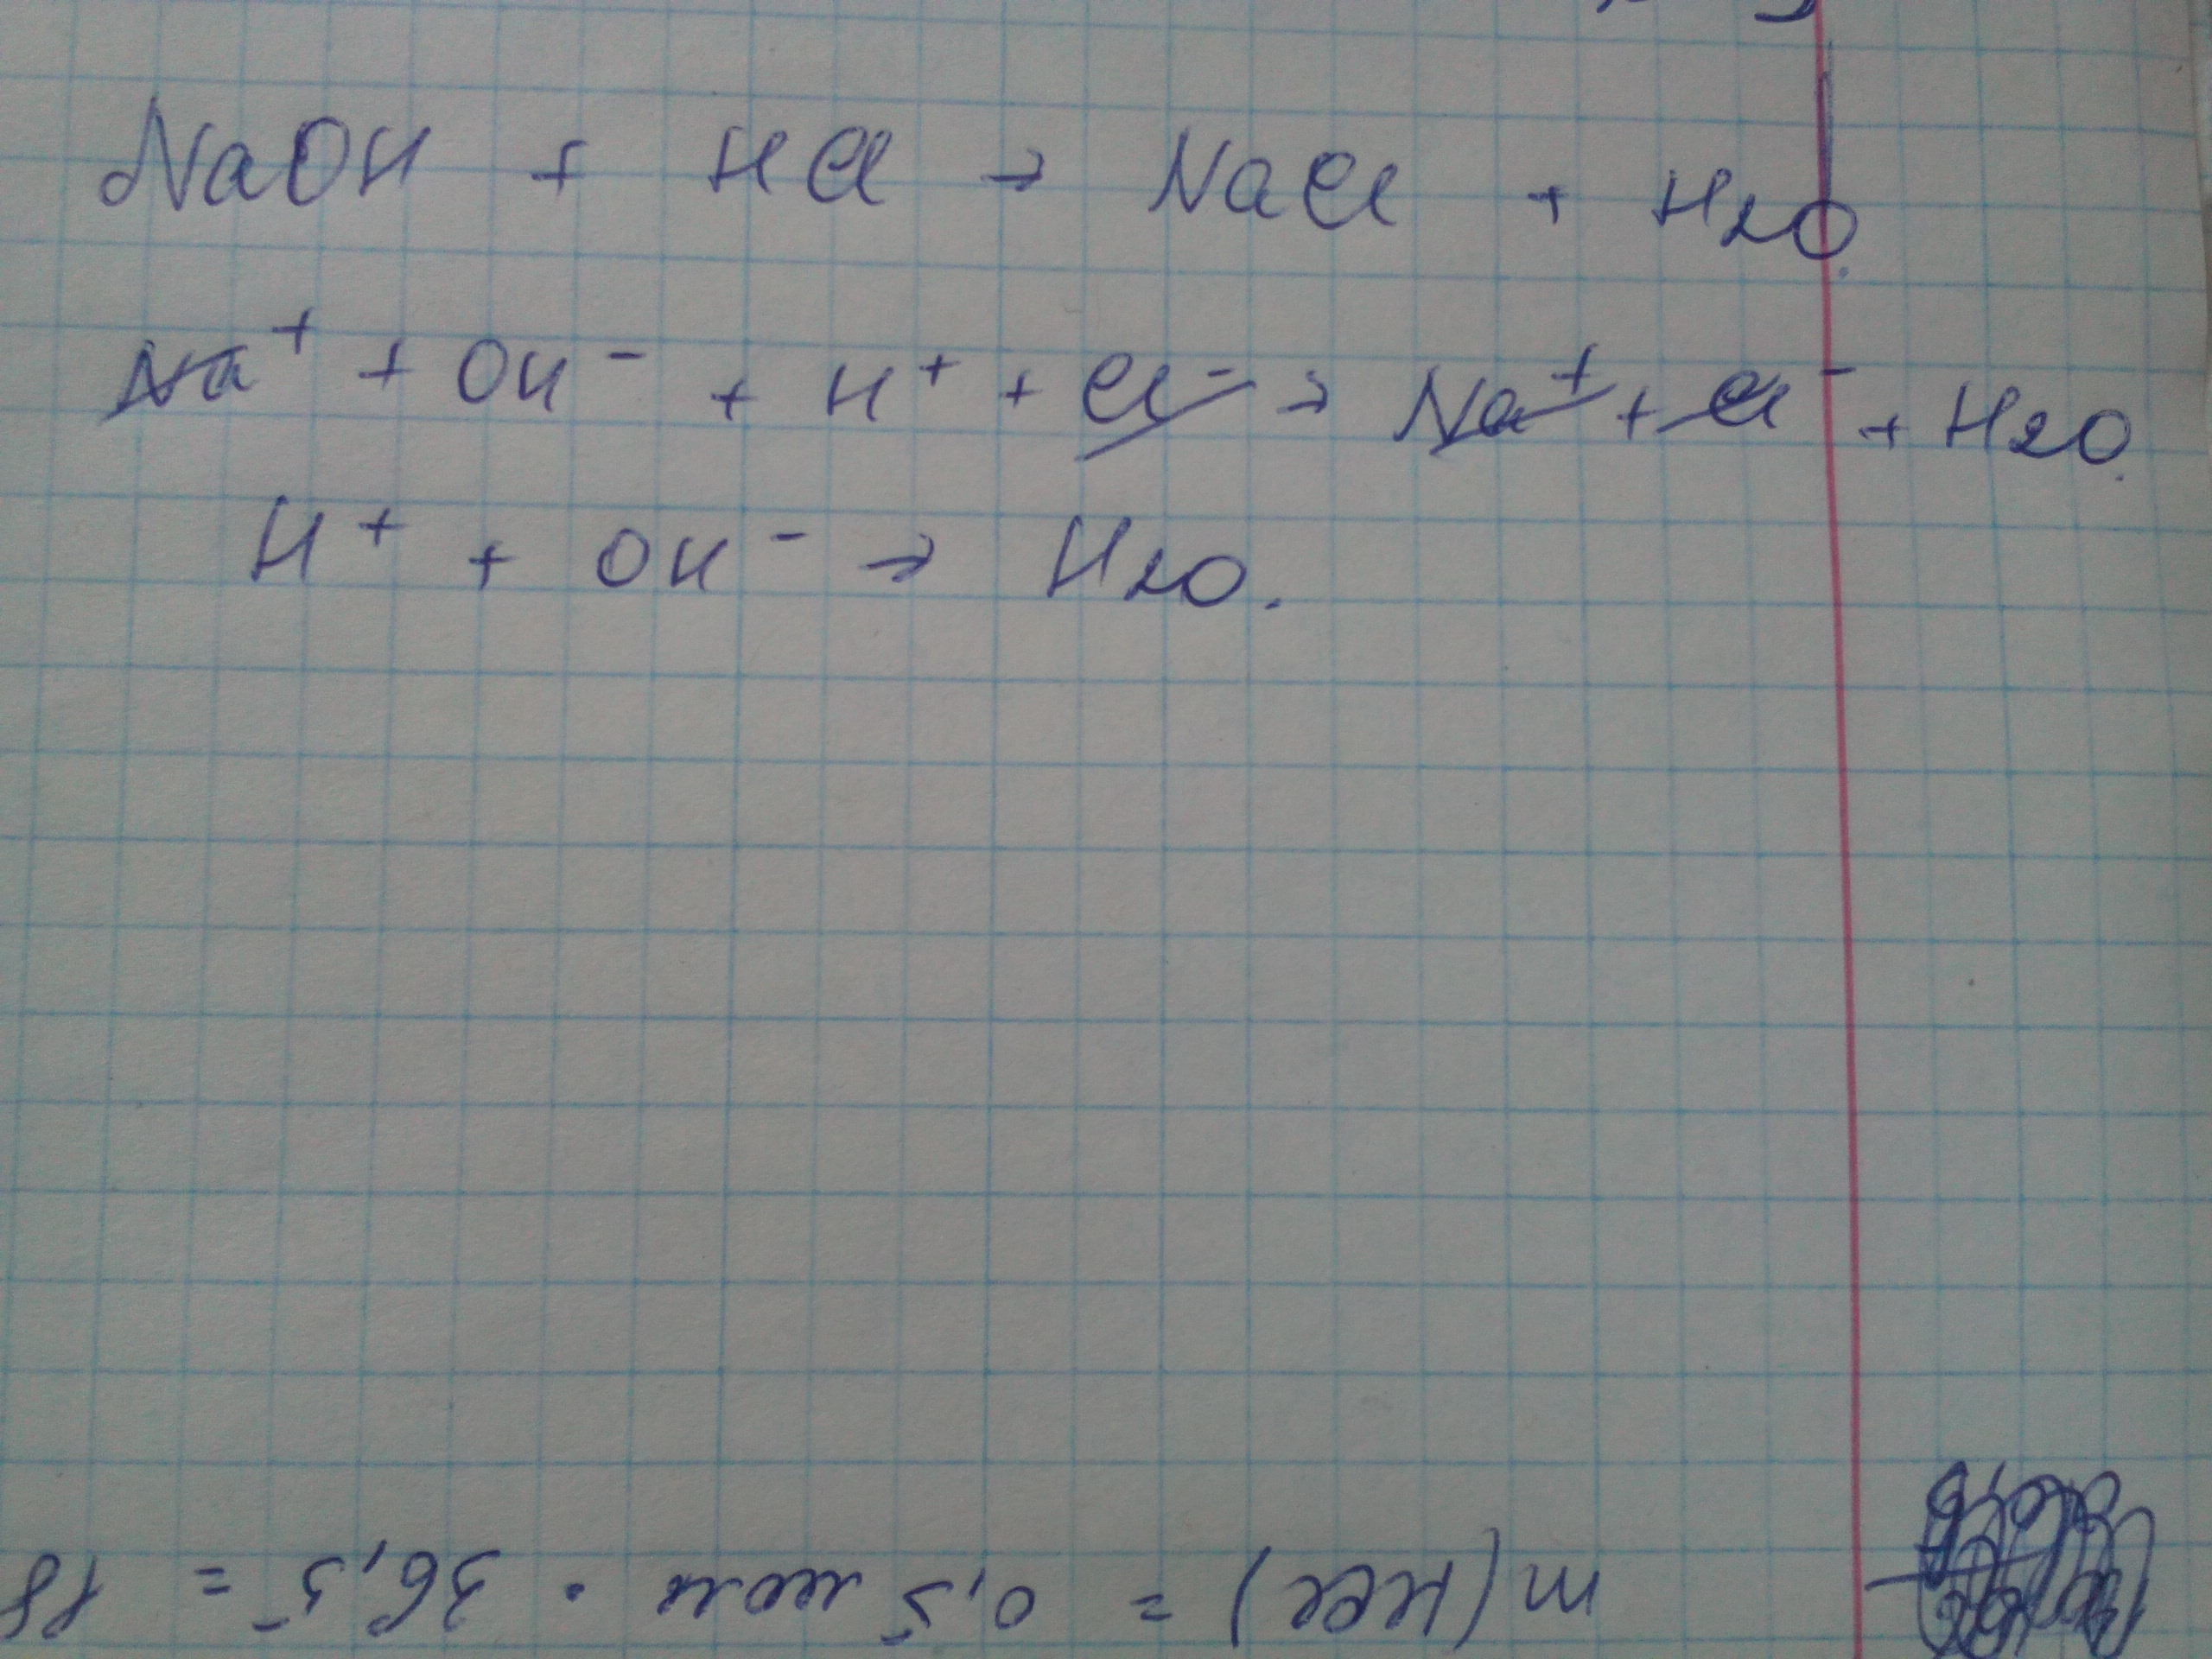 NaOH + HCl → NaCl + H2O.
Na⁺ + OH⁻ + H⁺ + Cl⁻ → Na⁺ + Cl⁻ + H2O.
H⁺ + OH⁻ → H2O.
m(HCl) = 0,5 моль · 36,5 = 18